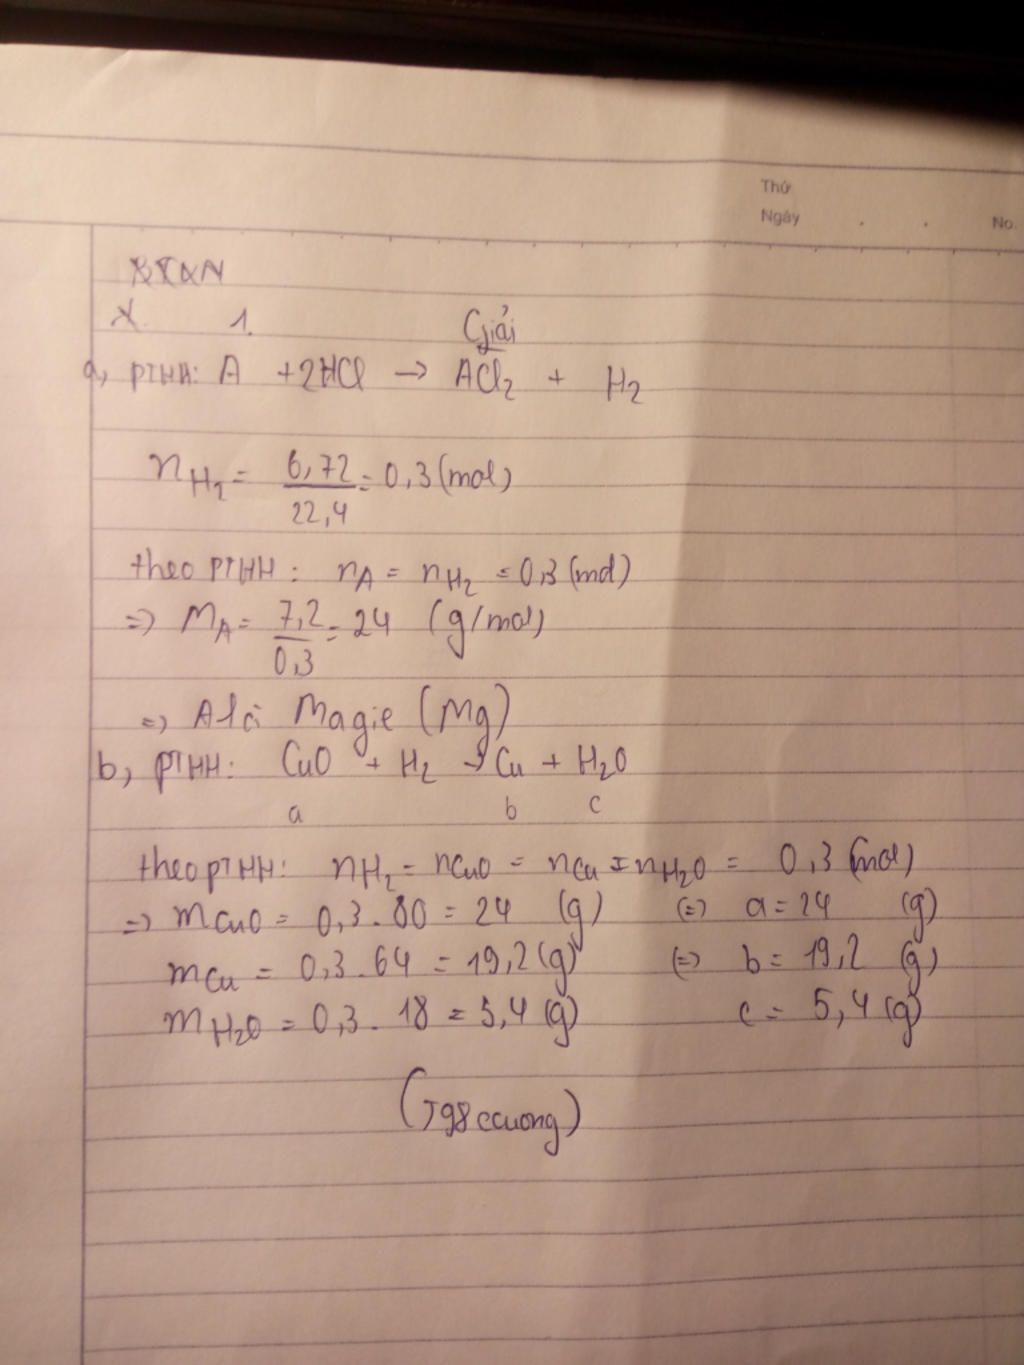 Thứ
Ngày . . No.
BTVN
X. 1. Giải
a, PTHH: A + 2HCl → ACl₂ + H₂
nH₂ = 6,72/22,4 = 0,3 (mol)
theo PTHH: nA = nH₂ = 0,3 (mol)
=> MA = 7,2/0,3 = 24 (g/mol)
=> A là Magie (Mg)
b, PTHH: CuO + H₂ → Cu + H₂O
a b c
theo PTHH: nH₂ = nCuO = nCu = nH₂O = 0,3 (mol)
=> mCuO = 0,3 . 80 = 24 (g) (=) a = 24 (g)
mCu = 0,3 . 64 = 19,2 (g) (=) b = 19,2 (g)
mH₂O = 0,3 . 18 = 5,4 (g) c = 5,4 (g)
(T98ccuong)